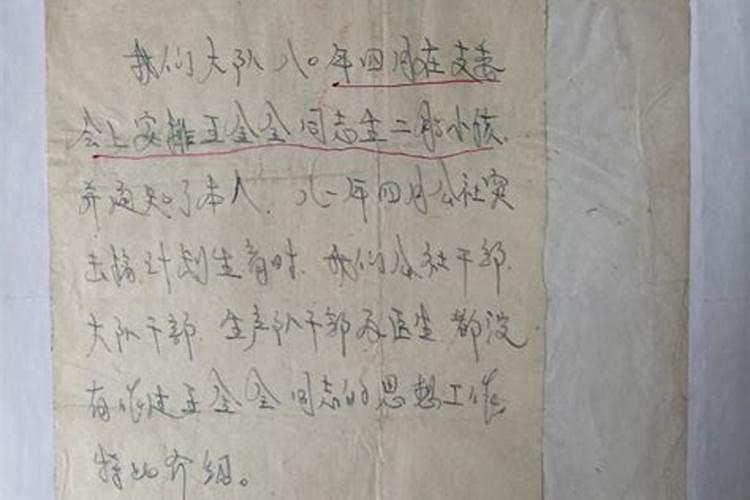 我们大队八〇年四月在支委
会上安排王金全同志生二胎小孩.
并通知了本人. 八一年四月公社突
击搞计划生育时. 我们公社干部.
大队干部. 生产队干部及医生都没
有作过王金全同志的思想工作.
特此介绍。